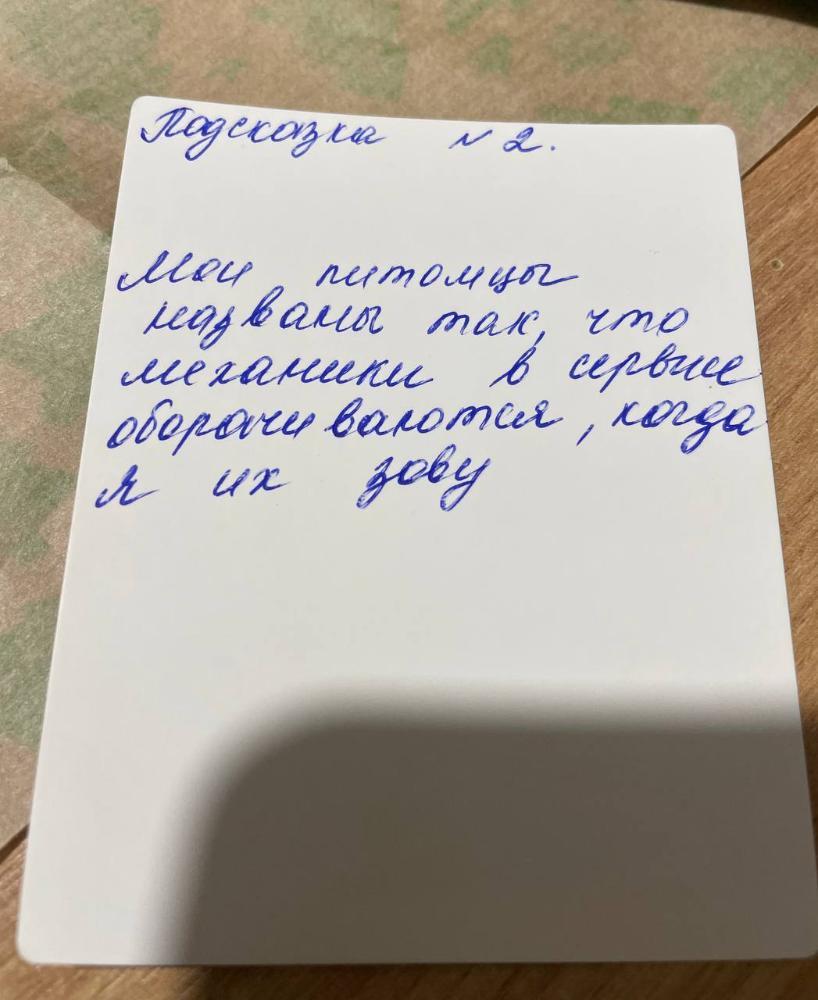 Подсказка № 2.
Мои питомцы
названы так, что
механики в сервисе
оборачиваются, когда
я их зову